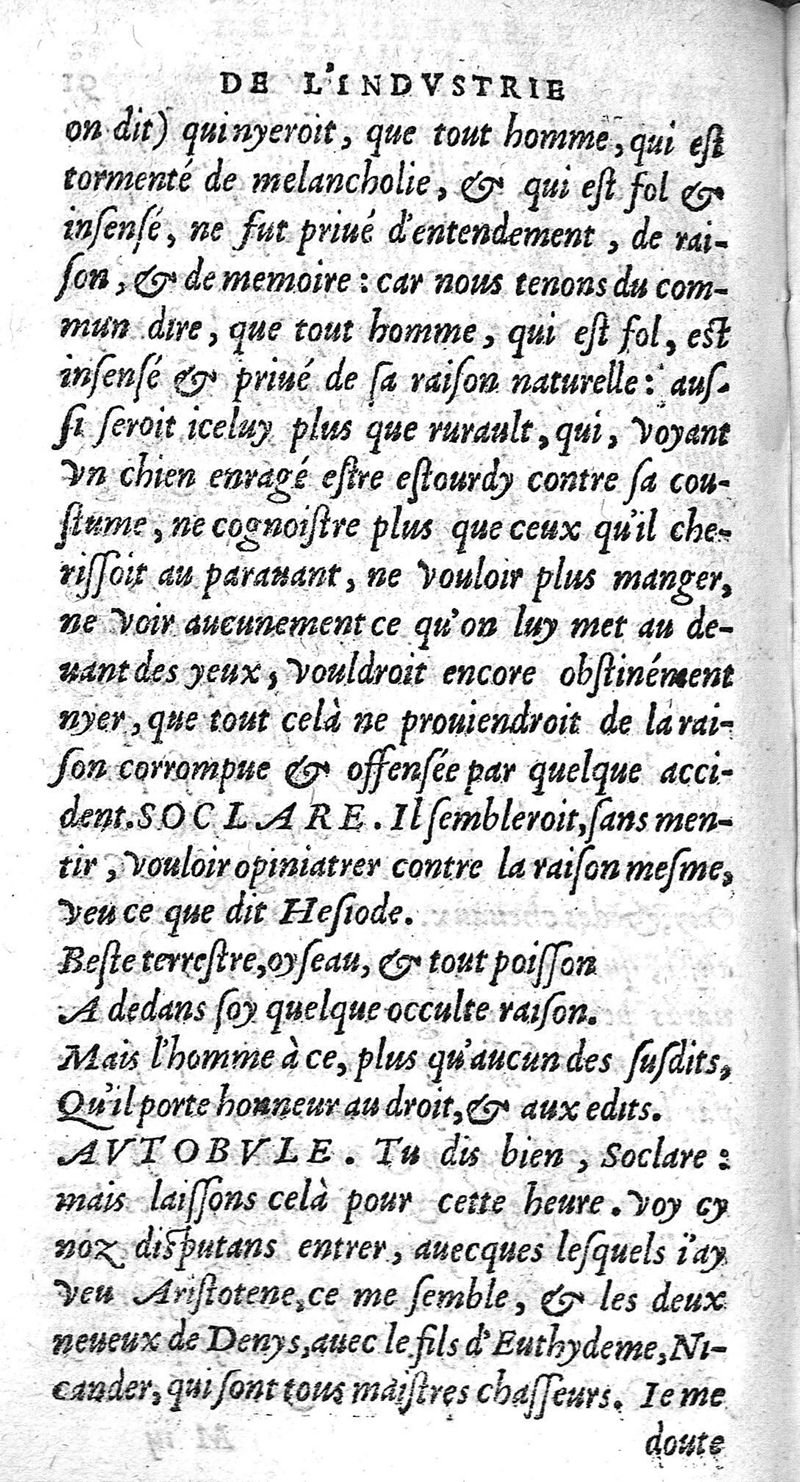 DE L'INDVSTRIE
on dit) qui nyeroit, que tout homme, qui eſt
tormenté de melancholie, & qui eſt fol &
inſenſé, ne fut priué d'entendement, de rai-
ſon, & de memoire : car nous tenons du com-
mun dire, que tout homme, qui eſt fol, eſt
inſenſé & priué de ſa raiſon naturelle : auſ-
ſi ſeroit iceluy plus que rurault, qui, voyant
vn chien enragé eſtre eſtourdy contre ſa cou-
ſtume, ne cognoiſtre plus que ceux qu'il che-
riſſoit au parauant, ne vouloir plus manger,
ne voir aucunement ce qu'on luy met au de-
uant des yeux, vouldroit encore obſtinément
nyer, que tout celà ne prouiendroit de la rai-
ſon corrompue & offenſée par quelque acci-
dent. SOCLARE. Il ſembleroit, ſans men-
tir, vouloir opiniatrer contre la raiſon meſme,
veu ce que dit Heſiode.
Beſte terreſtre, oyſeau, & tout poiſſon
A dedans ſoy quelque occulte raiſon.
Mais l'homme à ce, plus qu'aucun des ſuſdits,
Qu'il porte honneur au droit, & aux edits.
AVTOBVLE. Tu dis bien, Soclare :
mais laiſſons celà pour cette heure. Voy cy
noz diſputans entrer, auecques leſquels i'ay
veu Ariſtotene, ce me ſemble, & les deux
neueux de Denys, auec le fils d'Euthydeme, Ni-
cander, qui ſont tous maiſtres chaſſeurs. Ie me
doute